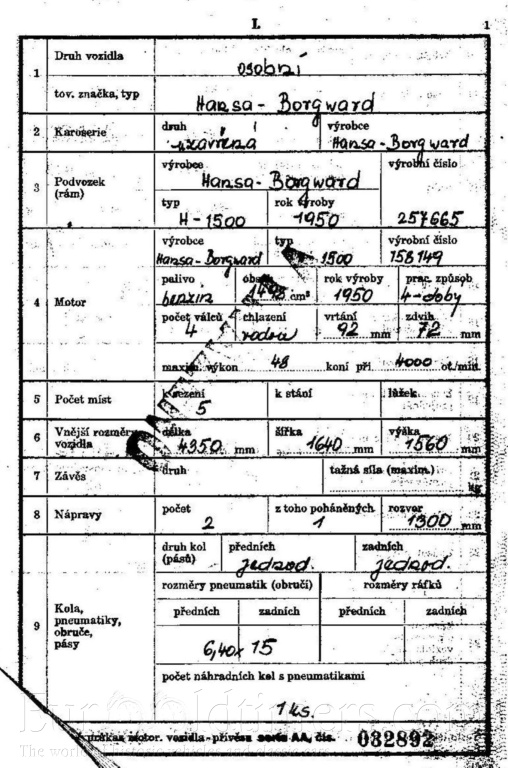 I. 1
1 Druh vozidla osobní
tov. značka, typ Hansa - Borgward
2 Karoserie druh uzavřená výrobce Hansa - Borgward
3 Podvozek (rám) výrobce Hansa - Borgward výrobní číslo
typ H-1500 rok výroby 1950 257665
4 Motor výrobce Hansa - Borgward typ 1500 výrobní číslo 158149
palivo benzin cm³ rok výroby 1950 prac. způsob 4-doby
počet válců 4 chlazení vodou vrtání 92 mm zdvih 72 mm
maxim. výkon 48 koní při 4000 ot./min.
5 Počet míst k sezení 5 k stání lůžek
6 Vnější rozměry vozidla délka 4350 mm šířka 1640 mm výška 1560 mm
7 Závěs druh tažná síla (maxim.) kg
8 Nápravy počet 2 z toho poháněných 1 rozvor 1300 mm
9 Kola, pneumatiky, obruče, pásy
druh kol (pásů) předních jednod. zadních jednod.
rozměry pneumatik (obručí) rozměry ráfků
předních zadních předních zadních
6,40 x 15
počet náhradních kol s pneumatikami
1 ks.
průkaz motor. vozidla - přívěsu serie AA, čís. 032892
Euro oldtimers.com